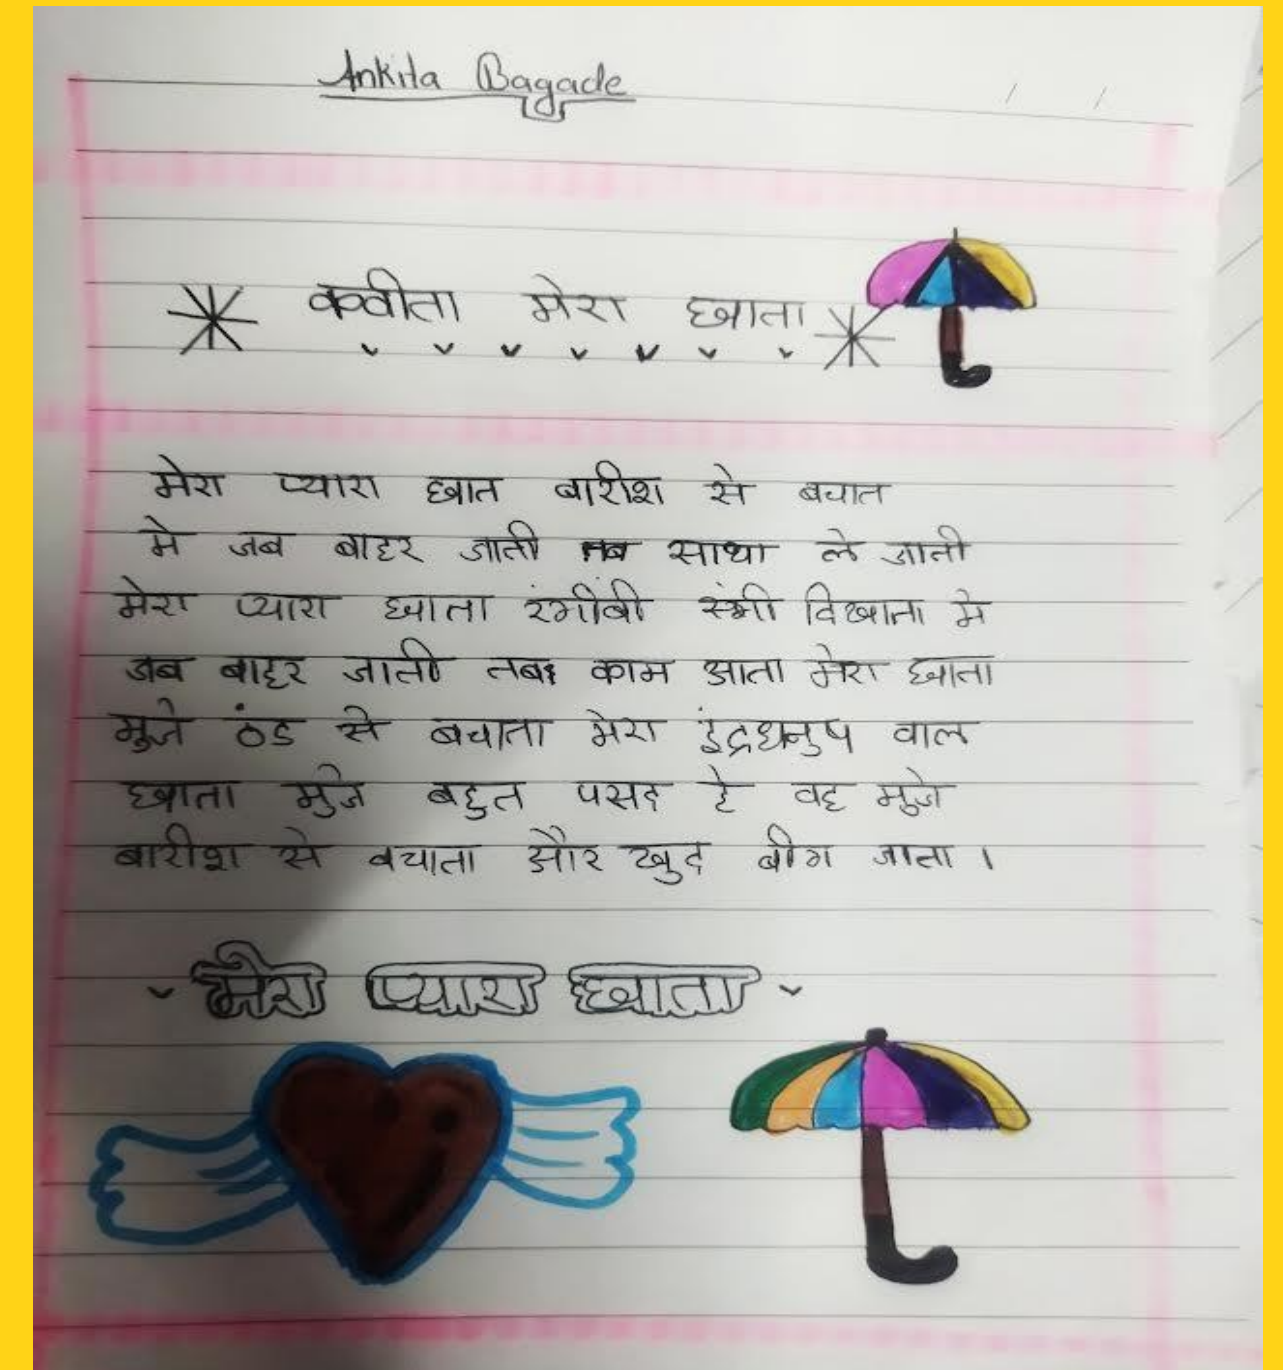 Ankita Bagade
कवीता मेरा छाता
मेरा प्यारा छात बारीश से बचात
मे जब बाहर जाती तब साथा ले जाती
मेरा प्यारा छाता रंगीबी रंगी दिखाता मे
जब बाहर जाती तब काम आता मेरा छाता
मुजे ठंड से बचाता मेरा इंद्रधनुष वाल
छाता मुजे बहुत पसद हे वह मुजे
बारीश से बचाता और खुद बीग जाता ।
मेरा प्यारा छाता